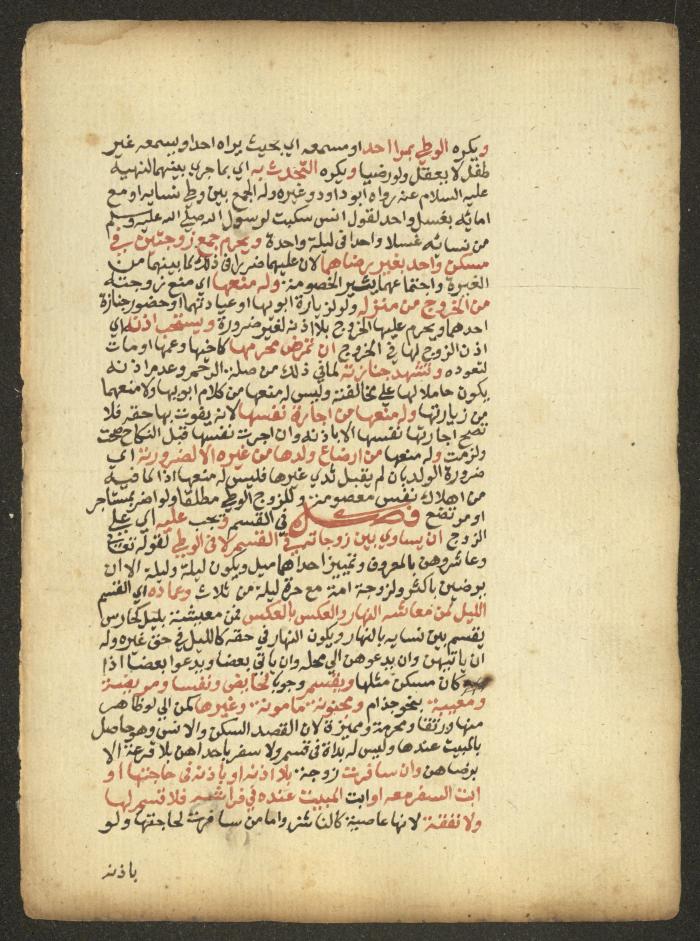 ويكره الوطي بمرا احد او مسمعه اي بحيث يراه احد او يسمعه غير
طفل لا يعقل ولو رضيا ويكره التحدث به اي بما جري بينهما لنهيه
عليه السلام عنه رواه ابو داود وغيره وله الجمع بين وطي نسايه او مع
امائه بغسل واحد لقول انس سكبت لرسول الله صلي الله عليه وسلم
من نسائه غسلا واحدا في ليلة واحدة ويحرم جمع زوجتين في
مسكن واحد بغير رضاهما لان عليهما ضررا في ذلك لما بينهما من
الغيرة واجتماعهما يثير الخصومة وله منعها اي منع زوجته
من الخروج من منزله ولو لزيارة ابويها او عيادتهما او حضور جنازة
احدهما ويحرم عليها الخروج بلا اذنه لغير ضرورة ويستحب اذنه اي
اذن الزوج لها في الخروج ان تمرض محرمها كاخيها وعمها او مات
لتعوده وتشهد جنازته لما في ذلك من صلة الرحم وعدم اذنه
يكون حاملا لها علي مخالفته وليس له منعها من كلام ابويها ولا منعهما
من زيارتها وله منعها من اجارة نفسها لانه يفوت بها حقه فلا
تصح اجارتها نفسها الا باذنه وان اجرت نفسها قبل النكاح صحت
ولزمت وله منعها من ارضاع ولدها من غيره الا لضرورته اي
ضرورة الولد بان لم يقبل ثدي غيرها فليس له منعها اذا لما فيه
من اهلاك نفس معصومة وللزوج الوطي مطلقا ولو اضر بمستاجر
او مرتضع فصل في القسم ويجب عليه اي علي
الزوج ان يساوي بين زوجاته في القسم لا في الوطي لقوله تعالي
وعاشروهن بالمعروف وتمييز احداهما ميل ويكون ليلة وليلة الا ان
يرضين باكثر ولزوجة امة مع حرة ليلة من ثلاث وعماده اي القسم
الليل لمن معاشه النهار والعكس بالعكس فمن معيشته بليل كحارس
يقسم بين نسايه بالنهار ويكون النهار في حقه كالليل في حق غيره وله
ان ياتيهن وان يدعوهن الي محله وان ياتي بعضا ويدعوا بعضا اذا
كان مسكن مثلها ويقسم وجوبا لحايض ونفسا ومريضة
ومعيبة بنحو جذام ومجنونة مامونة وغيرها كمن الي او ظاهر
منها ورتقا ومحرمة ومميزة لان القصد السكن والانس وهو حاصل
بالمبيت عندها وليس له بداة في قسم ولا سفر باحداهن بلا قرعة الا
برضاهن وان سافرت زوجة بلا اذنه او باذنه في حاجتها او
ابت السفر معه او ابت المبيت عنده في فراشه فلا قسم لها
ولا نفقة لانها عاصية كالناشز واما من سافرت لحاجتها ولو
باذنه